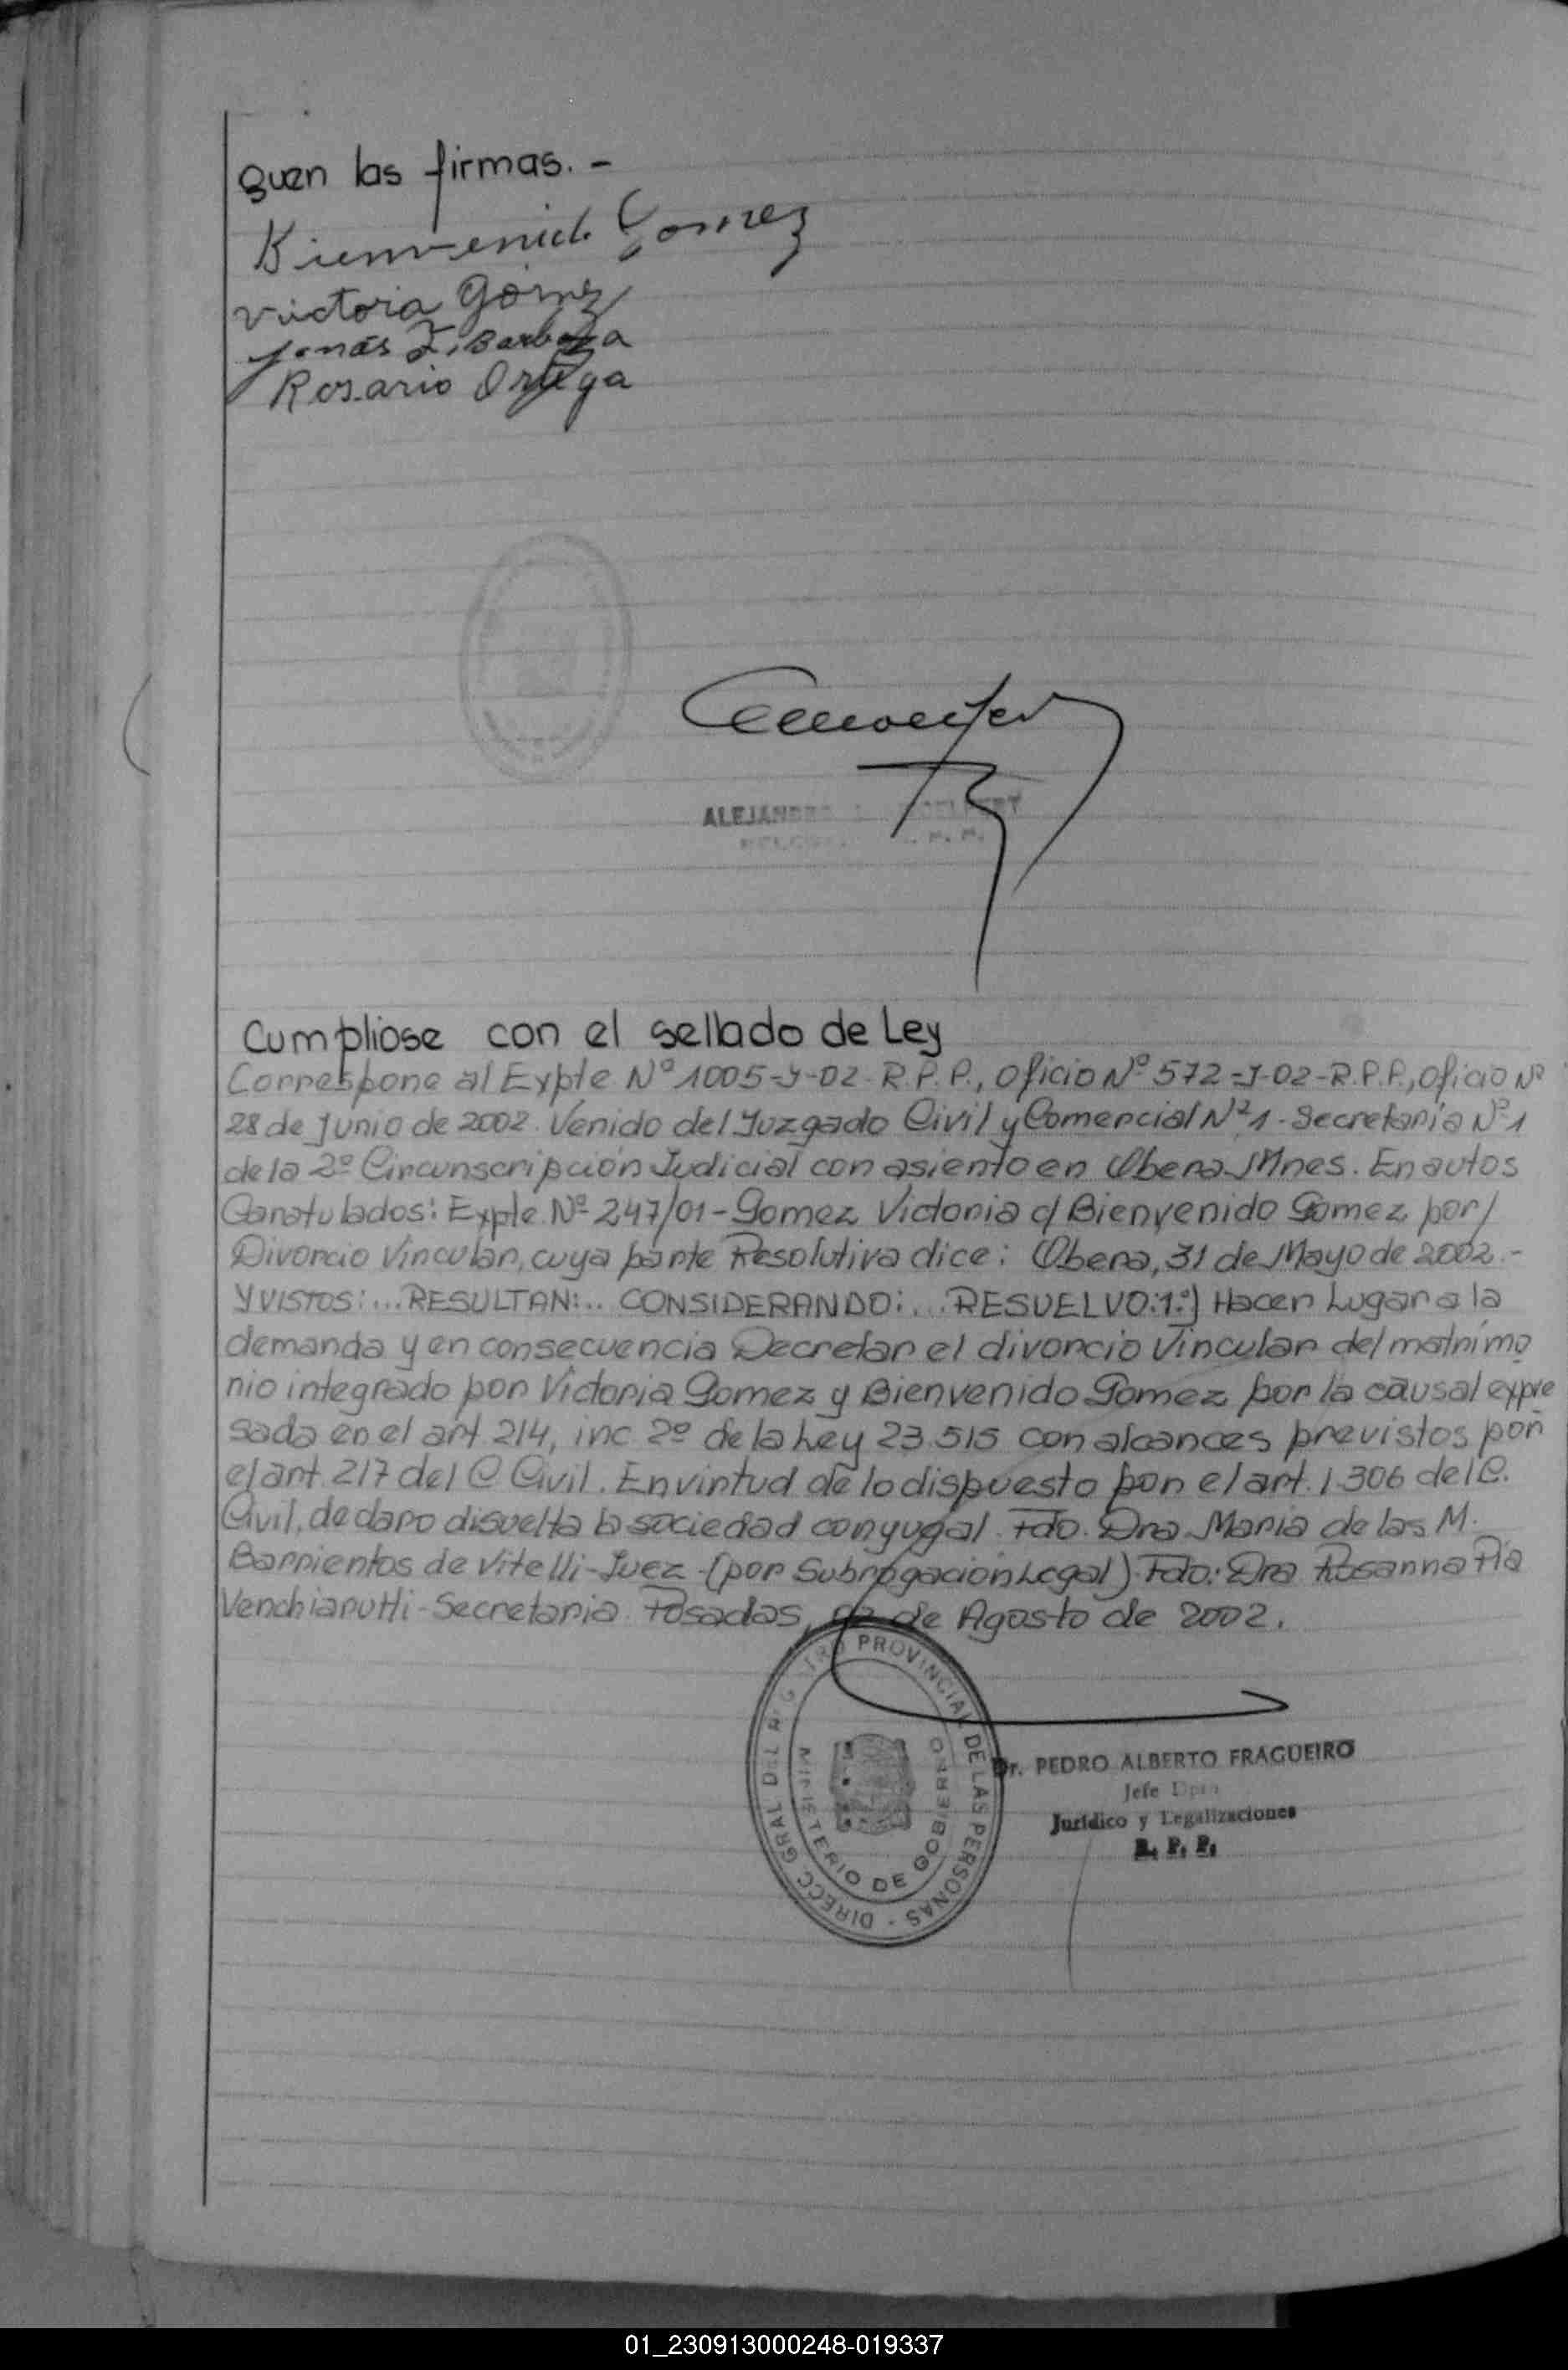 guen las firmas. -
Bienvenido Gomez
Victoria Gómez
Jonás F. Barboza
Rosario Ortega
ALEJANDRO
Cumpliose con el sellado de Ley
Corresponde al Expte Nº 1005-J-02-R.P.P., Oficio Nº 572-J-02-R.P.P., Oficio Nº
28 de Junio de 2002. Venido del Juzgado Civil y Comercial Nº 1 - Secretaría Nº 1
de la 2º Circunscripción Judicial con asiento en Obera Mnes. En autos
Caratulados: Expte. Nº 247/01 - Gomez Victoria c/ Bienvenido Gomez por/
Divorcio Vincular, cuya parte Resolutiva dice: Obera, 31 de Mayo de 2002.-
Y VISTOS:... RESULTAN:... CONSIDERANDO:... RESUELVO: 1º) Hacer Lugar a la
demanda y en consecuencia Decretar el divorcio Vincular del matrimo
nio integrado por Victoria Gomez y Bienvenido Gomez por la causal expre
sada en el art. 214, inc 2º de la Ley 23.515 con alcances previstos por
el art. 217 del C. Civil. En virtud de lo dispuesto por el art. 1.306 del C.
Civil, declaro disuelta la sociedad conyugal. Fdo. Dra Maria de las M.
Barrientos de Vitelli - Juez - (por Subrogación Legal). Fdo: Dra Rosanna Pia
Venchiarutti - Secretaria. Posadas, de Agosto de 2002.
DIRECC GRAL DEL REGISTRO PROVINCIAL DE LAS PERSONAS -
MINISTERIO DE GOBIERNO
Dr. PEDRO ALBERTO FRAGUEIRO
Jefe Dpto.
Jurídico y Legalizaciones
R. P. P.
01_230913000248-019337